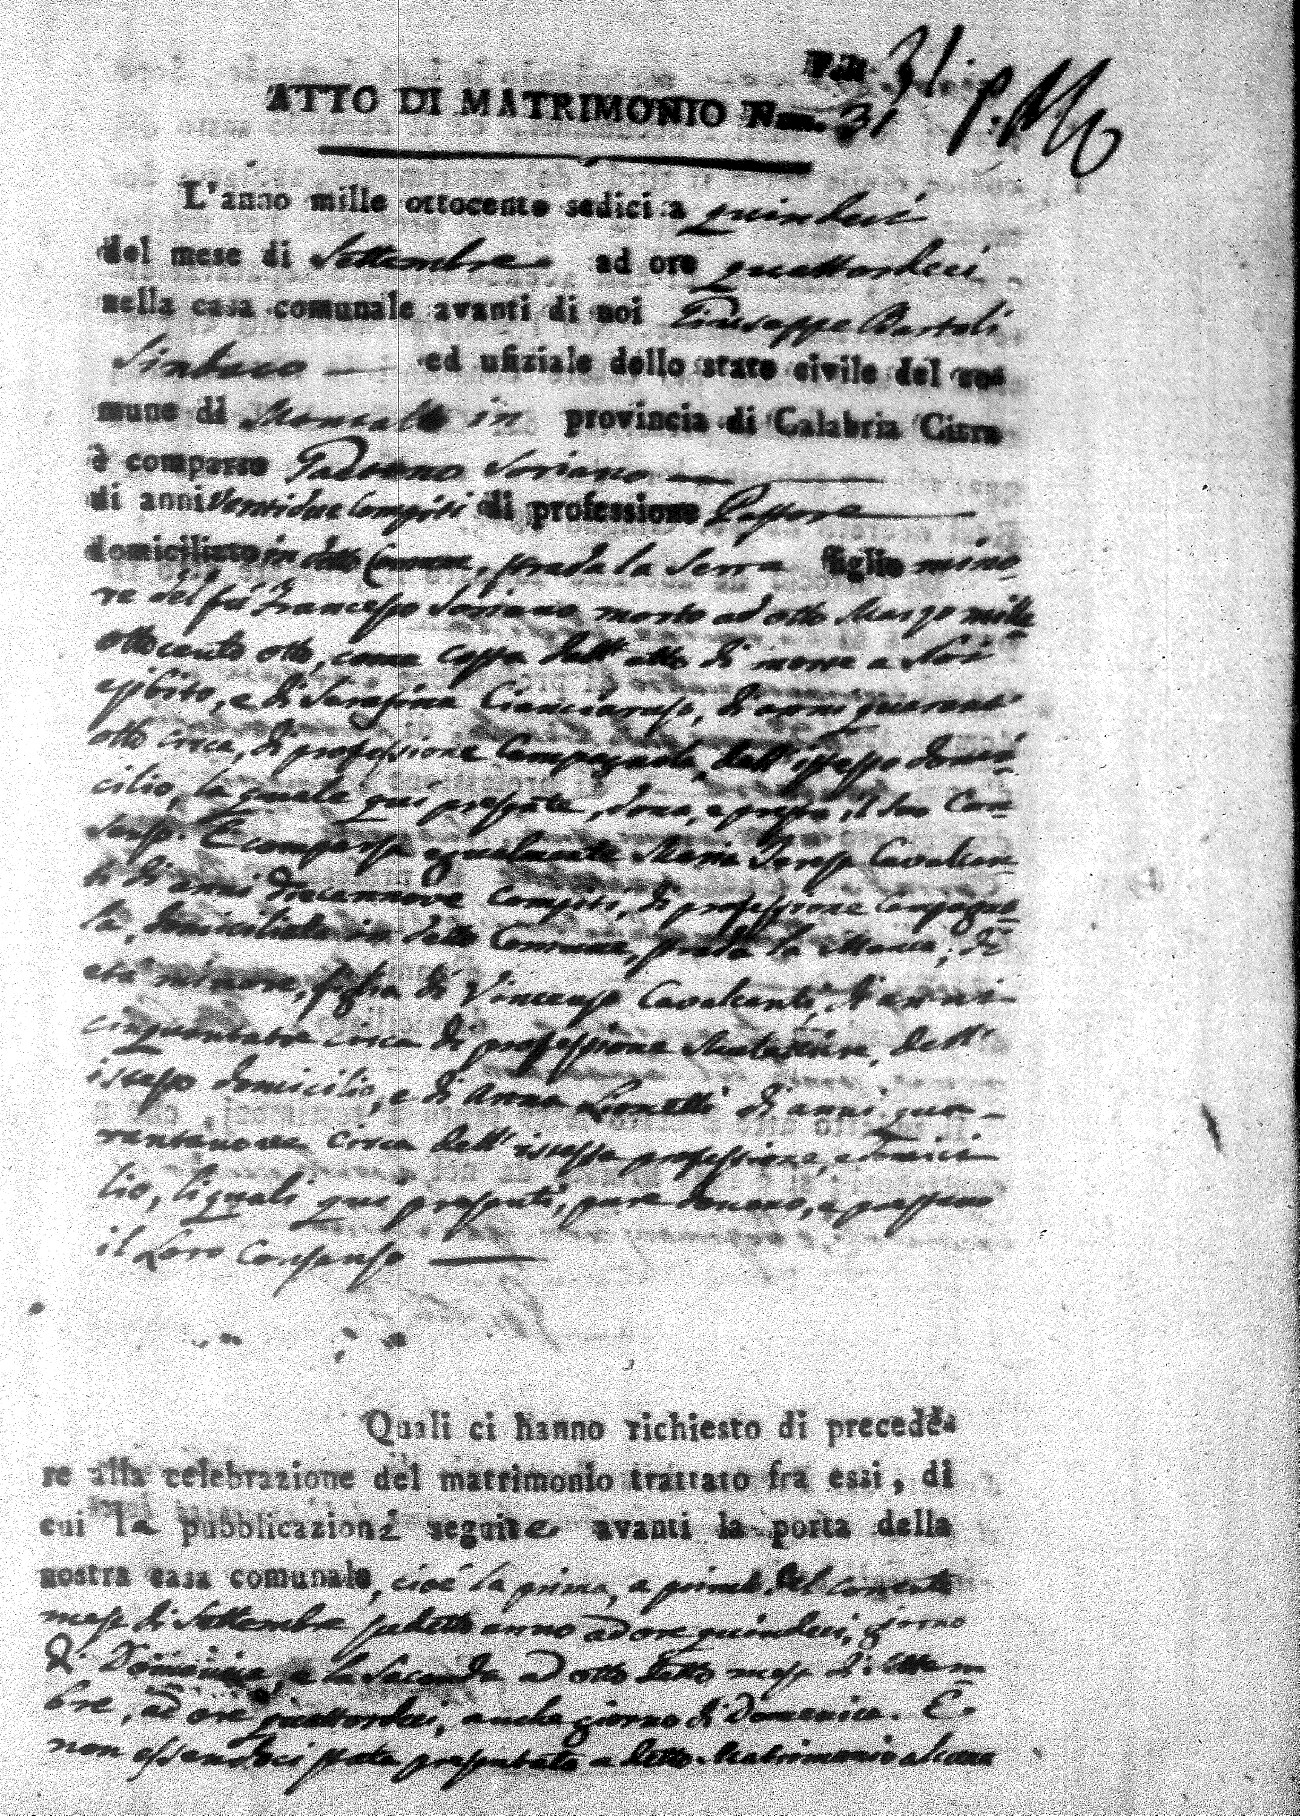 31
ATTO DI MATRIMONIO Num. 31
L'anno mille ottocento sedici a quindeci
del mese di Settembre ad ore quattordeci
nella casa comunale avanti di noi Giuseppe Bartoli
Sindaco ed ufiziale dello stato civile del co-
mune di in provincia di Calabria Citra
è comparso Gaetano Soriano
di anni Ventidue compiti di professione Pastore
domiciliato in detto Comune, strada la Serra figlio mino-
re del fù Francesco Soriano morto ad otto Marzo mille
ottocento otto, come costa dall'atto di morte a Noi
esibito, e di Serafina Cianciaruso, di anni quarant'
otto circa, di professione Campagnola, dall'istesso domi-
cilio, la quale qui presente, dona, e presta il suo Con-
senso. E comparsa egualmente Maria Teresa Cavalcan-
ti di anni diecennove compiti, di professione Campagno-
la, domiciliata in detto Comune, strada la ; di
età minore, figlia di Vincenzo Cavalcanti, di anni
cinquantatre circa di professione , dell'
istesso domicilio, e di Anna Lionetti di anni qua-
rantanove circa dell'istessa professione, e domici-
lio, li quali qui presenti, pure donano, e prestano
il Loro Consenso
Quali ci hanno richiesto di precede-
re alla celebrazione del matrimonio trattato fra essi, di
cui le pubblicazioni seguite avanti la porta della
nostra casa comunale, cioè la prima, a primo del corrente
mese di Settembre sudetto anno ad ore quindeci, giorno
di Domenica, e la seconda ad otto detto mese di Settem-
bre, ad ore quattordeci, anche giorno di Domenica. E
non essendoci stata presentata a detto Matrimonio alcuna